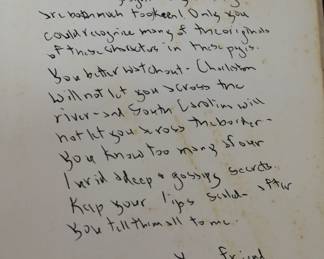 are both much too keen! Only you
could recognize many of the originals
of these characters in these pages.
You better watch out - Charleston
will not let you across the
river - and South Carolina will
not let you across the border -
You know too many of our
lurid & deep & gossipy secrets.
Keep your lips sealed - after
you tell them all to me.
friend